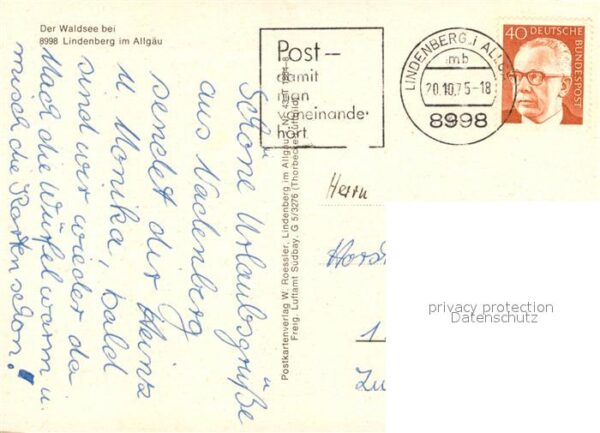 Der Waldsee bei
8998 Lindenberg im Allgäu
Post—
damit
man
voneinander
hört
LINDENBERG i ALLG
mb
20.10.75-18
8998
40 DEUTSCHE
BUNDESPOST
Schöne Urlaubsgrüße
aus Nadenberg
sendet dir Heinz
u. Monika, bald
sind wir wieder da
Mach die Würfel warm u.
misch die Karten schon!
Postkartenverlag W. Roessler, Lindenberg im Allgäu
Freig. Luftamt Südbay. G 5/3276 (Thorbecke-Luftbild)
Herrn
Horst
1
Zu
privacy protection
Datenschutz